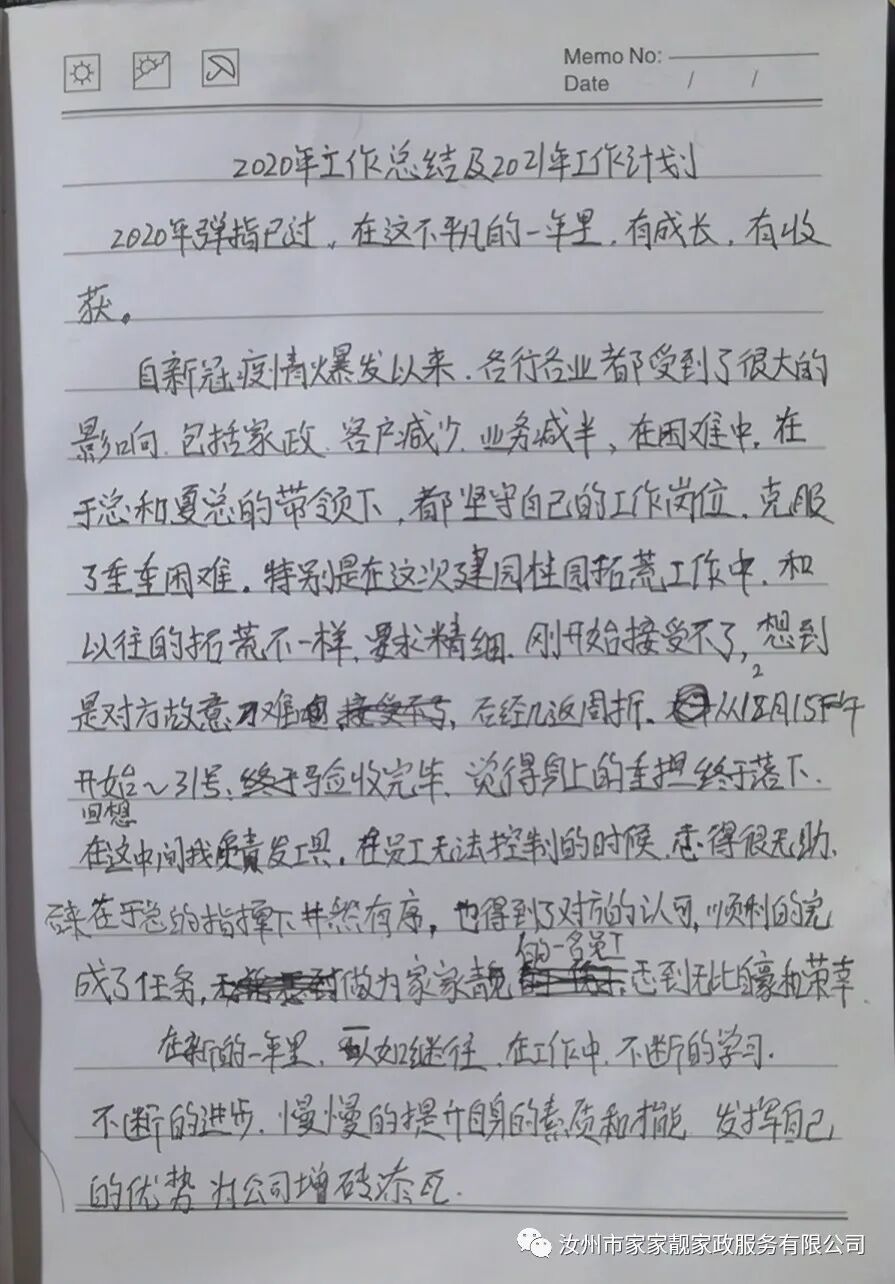 Memo No:
Date / /
2020年工作总结及2021年工作计划
2020年弹指已过，在这不平凡的一年里，有成长，有收
获。
自新冠疫情爆发以来，各行各业都受到了很大的
影响，包括家政，客户减少，业务减半，在困难中，在
于总和夏总的带领下，都坚守自己的工作岗位，克服
了重重困难。特别是在这次建园性园拓荒工作中，和
以往的拓荒不一样，要求精细，刚开始接受不了，想到
是对方故意刁难，后经几返周折。从12月15下午
开始～31号，验收完毕，觉得身上的重担终于落下，
回想
在这中间我负责发工具，在员工无法控制的时候，感得很无助，
后来在于总的指挥下井然有序，也得到了对方的认可，顺利的完
成了任务，做为家家靓的一名员工，感到无比自豪和荣幸
在新的一年里，一如继往，在工作中，不断的学习，
不断的进步，慢慢的提升自身的素质和才能，发挥自己
的优势为公司增砖添瓦.
汝州市家家靓家政服务有限公司